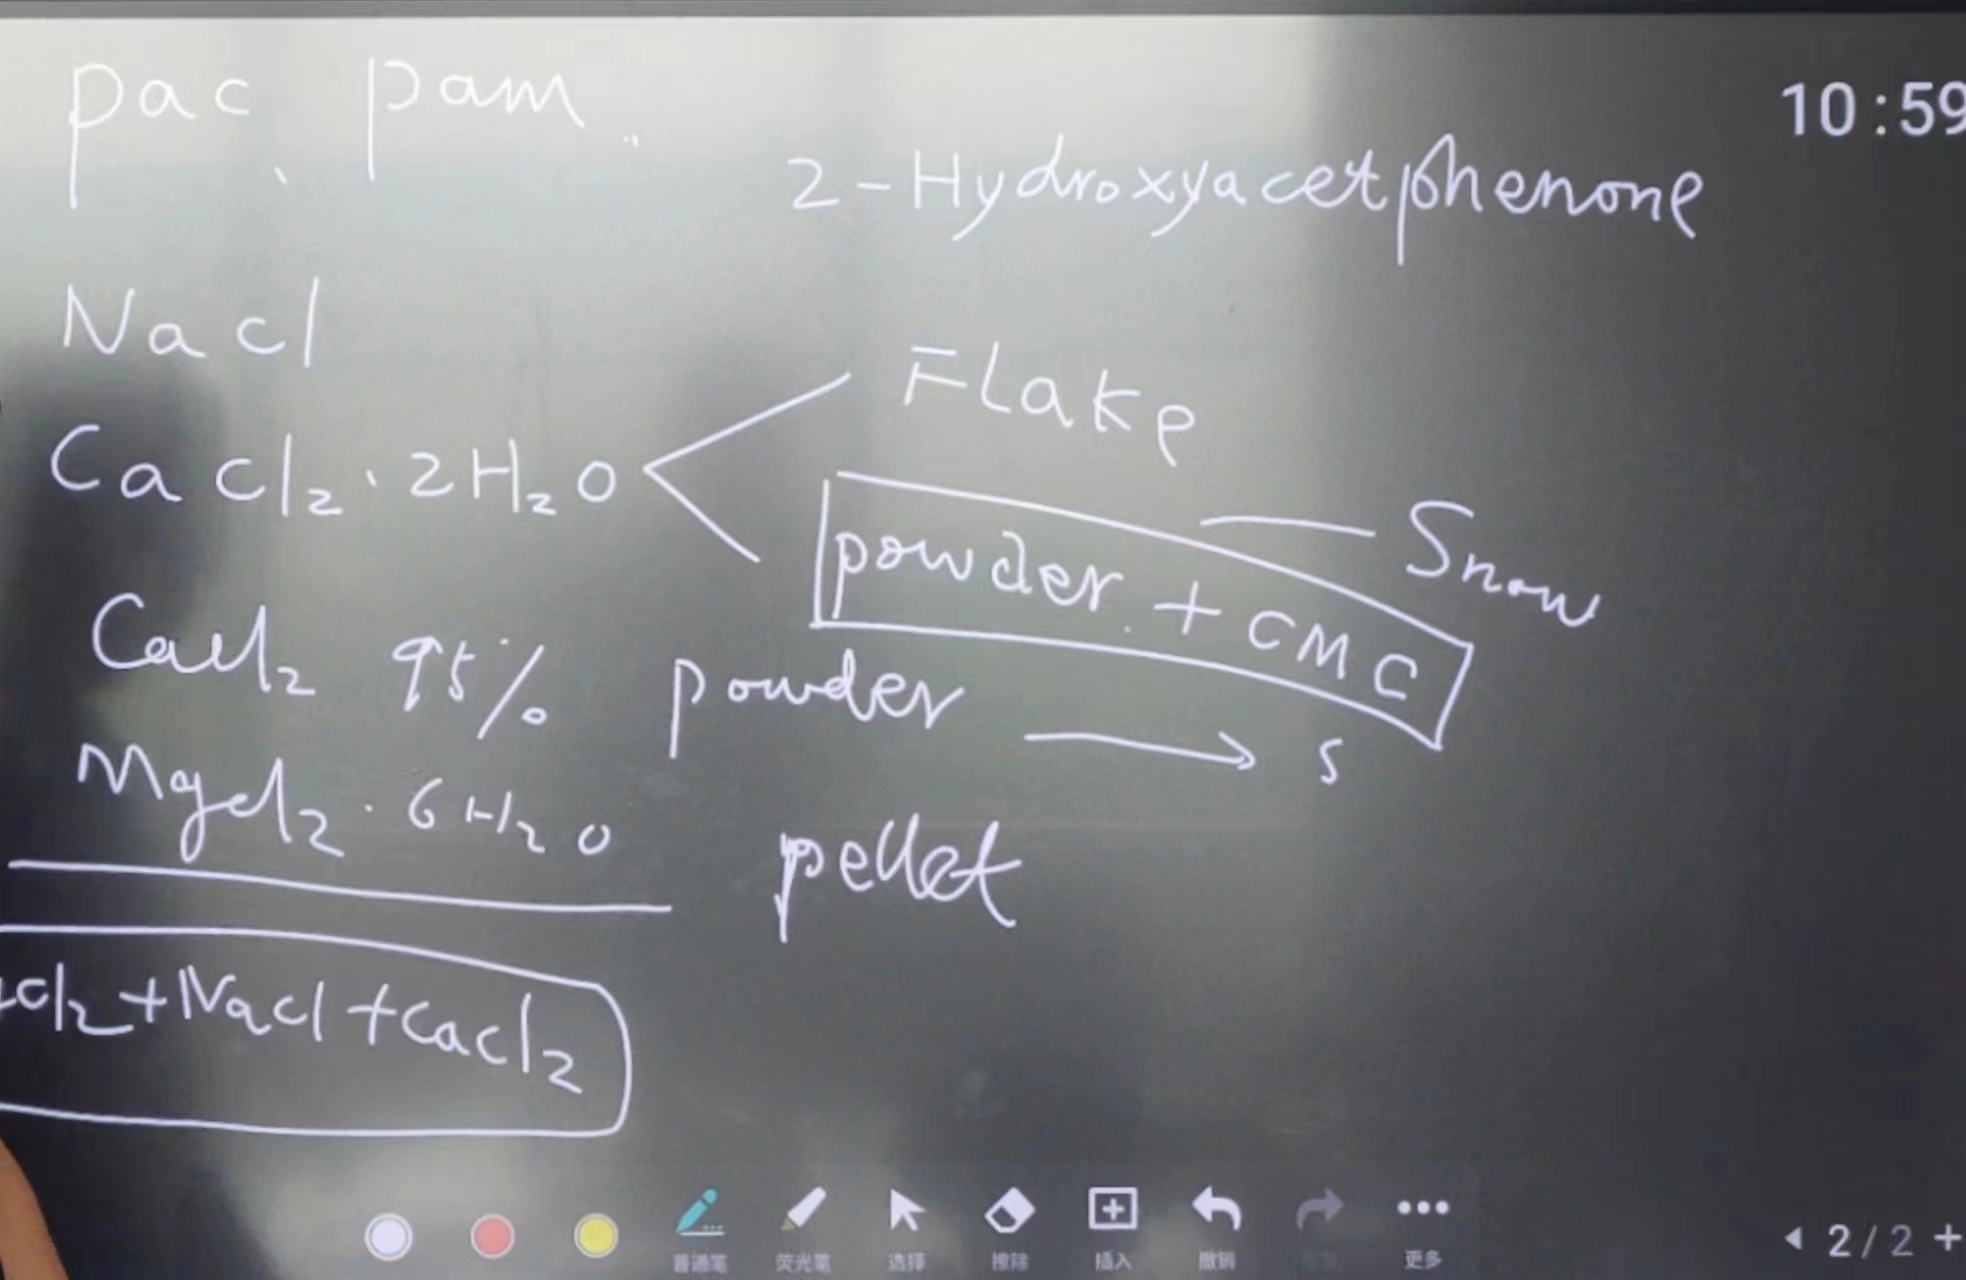 pac、pam..
10:59
2-Hydroxyacetphenone
NaCl
Flake
CaCl₂·2H₂O
powder + CMC — Snow
CaCl₂ 95% powder → s
MgCl₂·6H₂O
pellet
cl₂+NaCl+CaCl₂
普通笔 荧光笔 选择 擦除 插入 撤销 更多
2/2 +